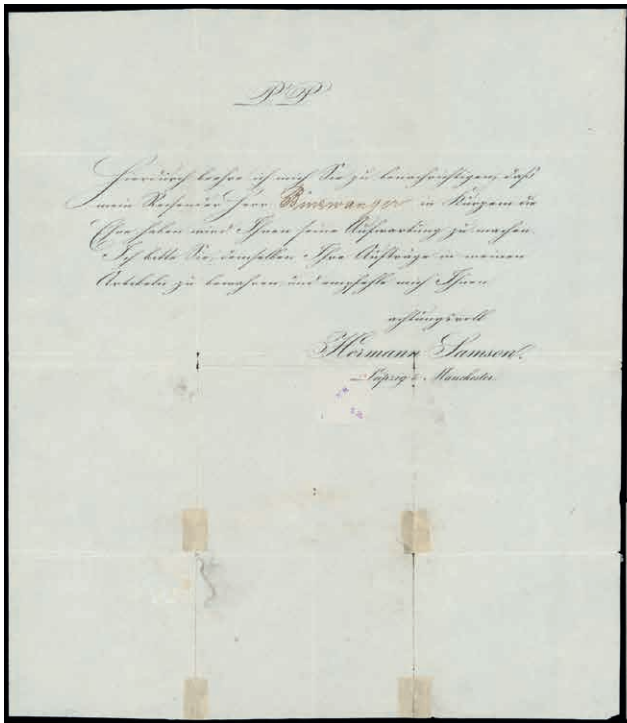 P. P.
Hierdurch beehre ich mich Sie zu benachrichtigen, daß
mein Reisender Herr Binswanger in Kürzem die
Ehre haben wird Ihnen seine Aufwartung zu machen.
Ich bitte Sie, demselben Ihre Aufträge in meinen
Artikeln zu bewahren und empfehle mich Ihnen
achtungsvoll
Hermann Samson.
Leipzig & Manchester.